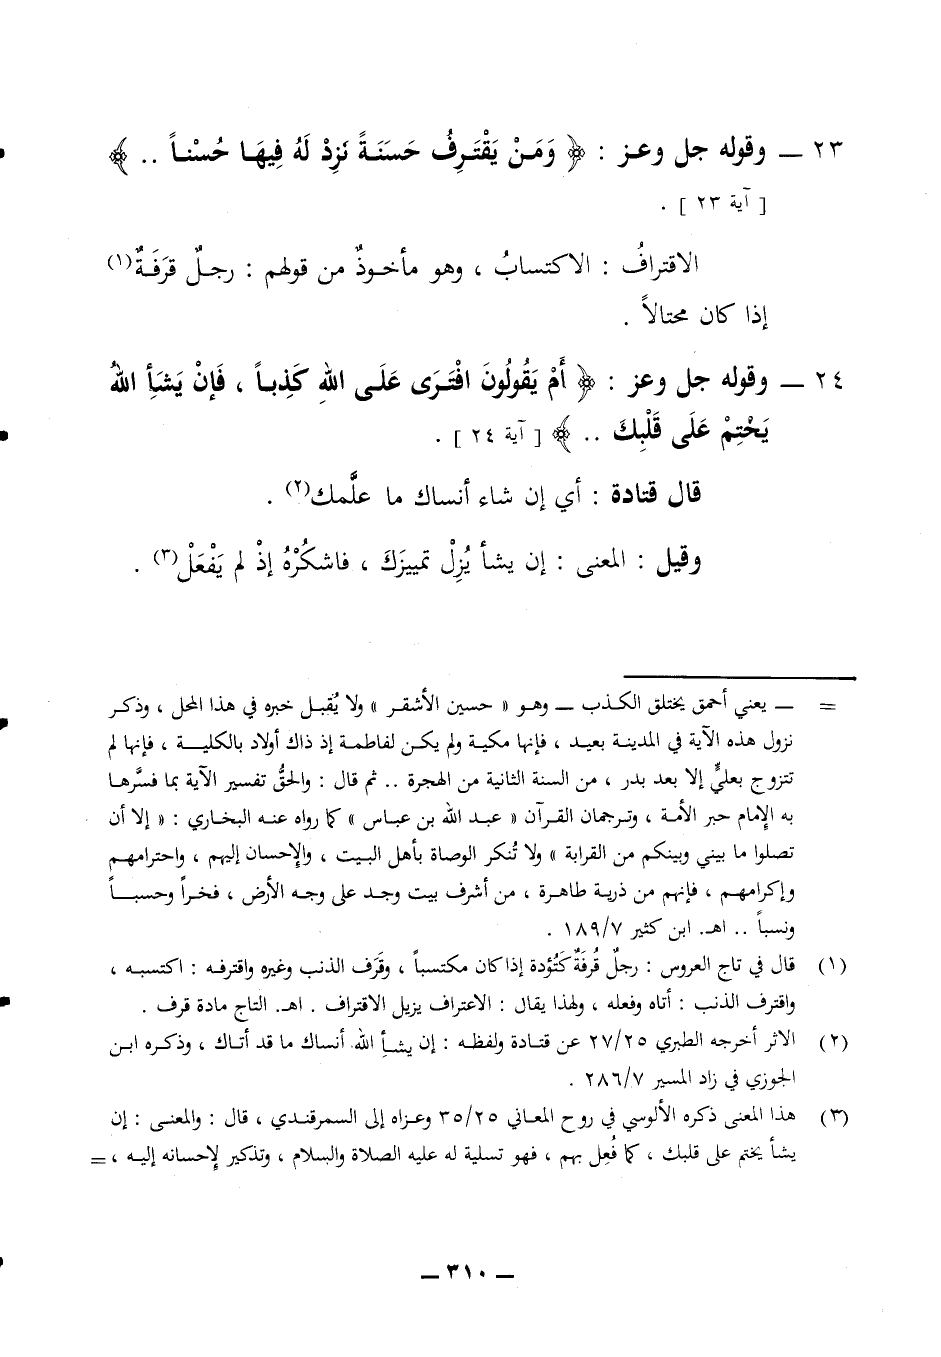 ٢٣ ــ وقوله جل وعز : ﴿ وَمَنْ يَقْتَرِفُ حَسَنَةً نَزِدْ لَهُ فِيهَا حُسْناً .. ﴾
[ آية ٢٣ ] .
الاقترافُ : الاكتسابُ ، وهو مأخوذٌ من قولهم : رجلٌ قرَفَةٌ(١)
إذا كان محتالاً .
٢٤ ــ وقوله جل وعز : ﴿ أَمْ يَقُولُونَ افْتَرَى عَلَى اللهِ كَذِباً ، فَإنْ يَشَأِ اللهُ
يَخْتِمْ عَلَى قَلْبِكَ .. ﴾ [ آية ٢٤ ] .
قال قتادة : أي إن شاء أنساك ما علَّمك(٢) .
وقيل : المعنى : إن يشأ يُزِلْ تمييزَكَ ، فاشكُرْهُ إذْ لم يَفْعَلْ(٣) .
= ــ يعني أحمق يختلق الكذب ــ وهو « حسين الأشقر » ولا يُقبل خبره في هذا المحل ، وذكر
نزول هذه الآية في المدينة بعيد ، فإنها مكية ولم يكن لفاطمة إذ ذاك أولاد بالكلية ، فإنها لم
تتزوج بعليٍّ إلا بعد بدر ، من السنة الثانية من الهجرة .. ثم قال : والحقُّ تفسير الآية بما فسَّرها
به الإمام حبر الأمة ، وترجمان القرآن « عبد الله بن عباس » كما رواه عنه البخاري : « إلا أن
تصلوا ما بيني وبينكم من القرابة » ولا تُنكر الوصاة بأهل البيت ، والإحسان إليهم ، واحترامهم
وإكرامهم ، فإنهم من ذرية طاهرة ، من أشرف بيت وجد على وجه الأرض ، فخراً وحسباً
ونسباً .. اهـ. ابن كثير ١٨٩/٧ .
(١) قال في تاج العروس : رجلٌ قُرفَةٌ كَتُؤدة إذا كان مكتسباً ، وقَرَف الذنب وغيره واقترفه : اكتسبه ،
واقترف الذنب : أتاه وفعله ، ولهذا يقال : الاعتراف يزيل الاقتراف . اهـ. التاج مادة قرف .
(٢) الاثر أخرجه الطبري ٢٧/٢٥ عن قتادة ولفظه : إن يشأِ الله أنساك ما قد أتاك ، وذكره ابن
الجوزي في زاد المسير ٢٨٦/٧ .
(٣) هذا المعنى ذكره الألوسي في روح المعاني ٣٥/٢٥ وعزاه إلى السمرقندي ، قال : والمعنى : إن
يشأ يختم على قلبك ، كما فُعِل بهم ، فهو تسلية له عليه الصلاة والسلام ، وتذكير لإحسانه إليه ، =
ــ ٣١٠ ــ